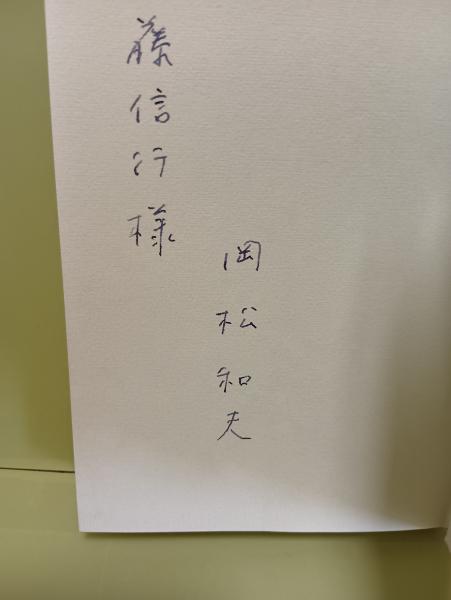 藤信行様
岡松和夫